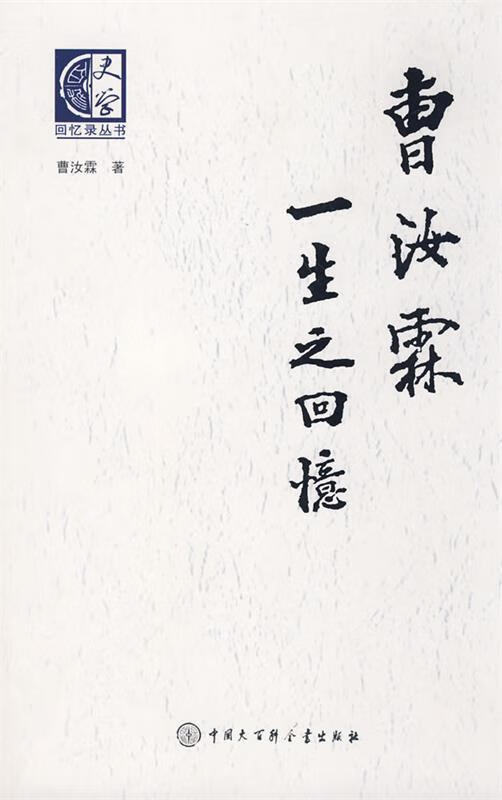 史学
回忆录丛书
曹汝霖 著
曹汝霖
一生之回憶
中国大百科全书出版社